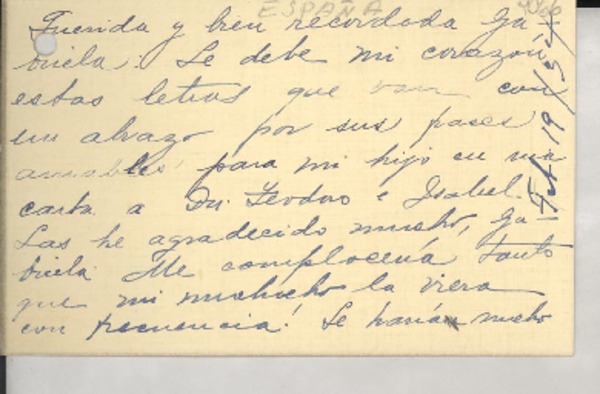 ESPAÑA
Querida y bien recordada Ga-
briela: Le debe mi corazón
estas letras que van con
un abrazo por sus frases
amables para mi hijo en una
carta a Dn. Teodoro e Isabel.
Las he agradecido mucho, Ga-
briela. Me complacería tanto
que mi muchacho la viera
con frecuencia! Le harían mucho
Feb. 19/54